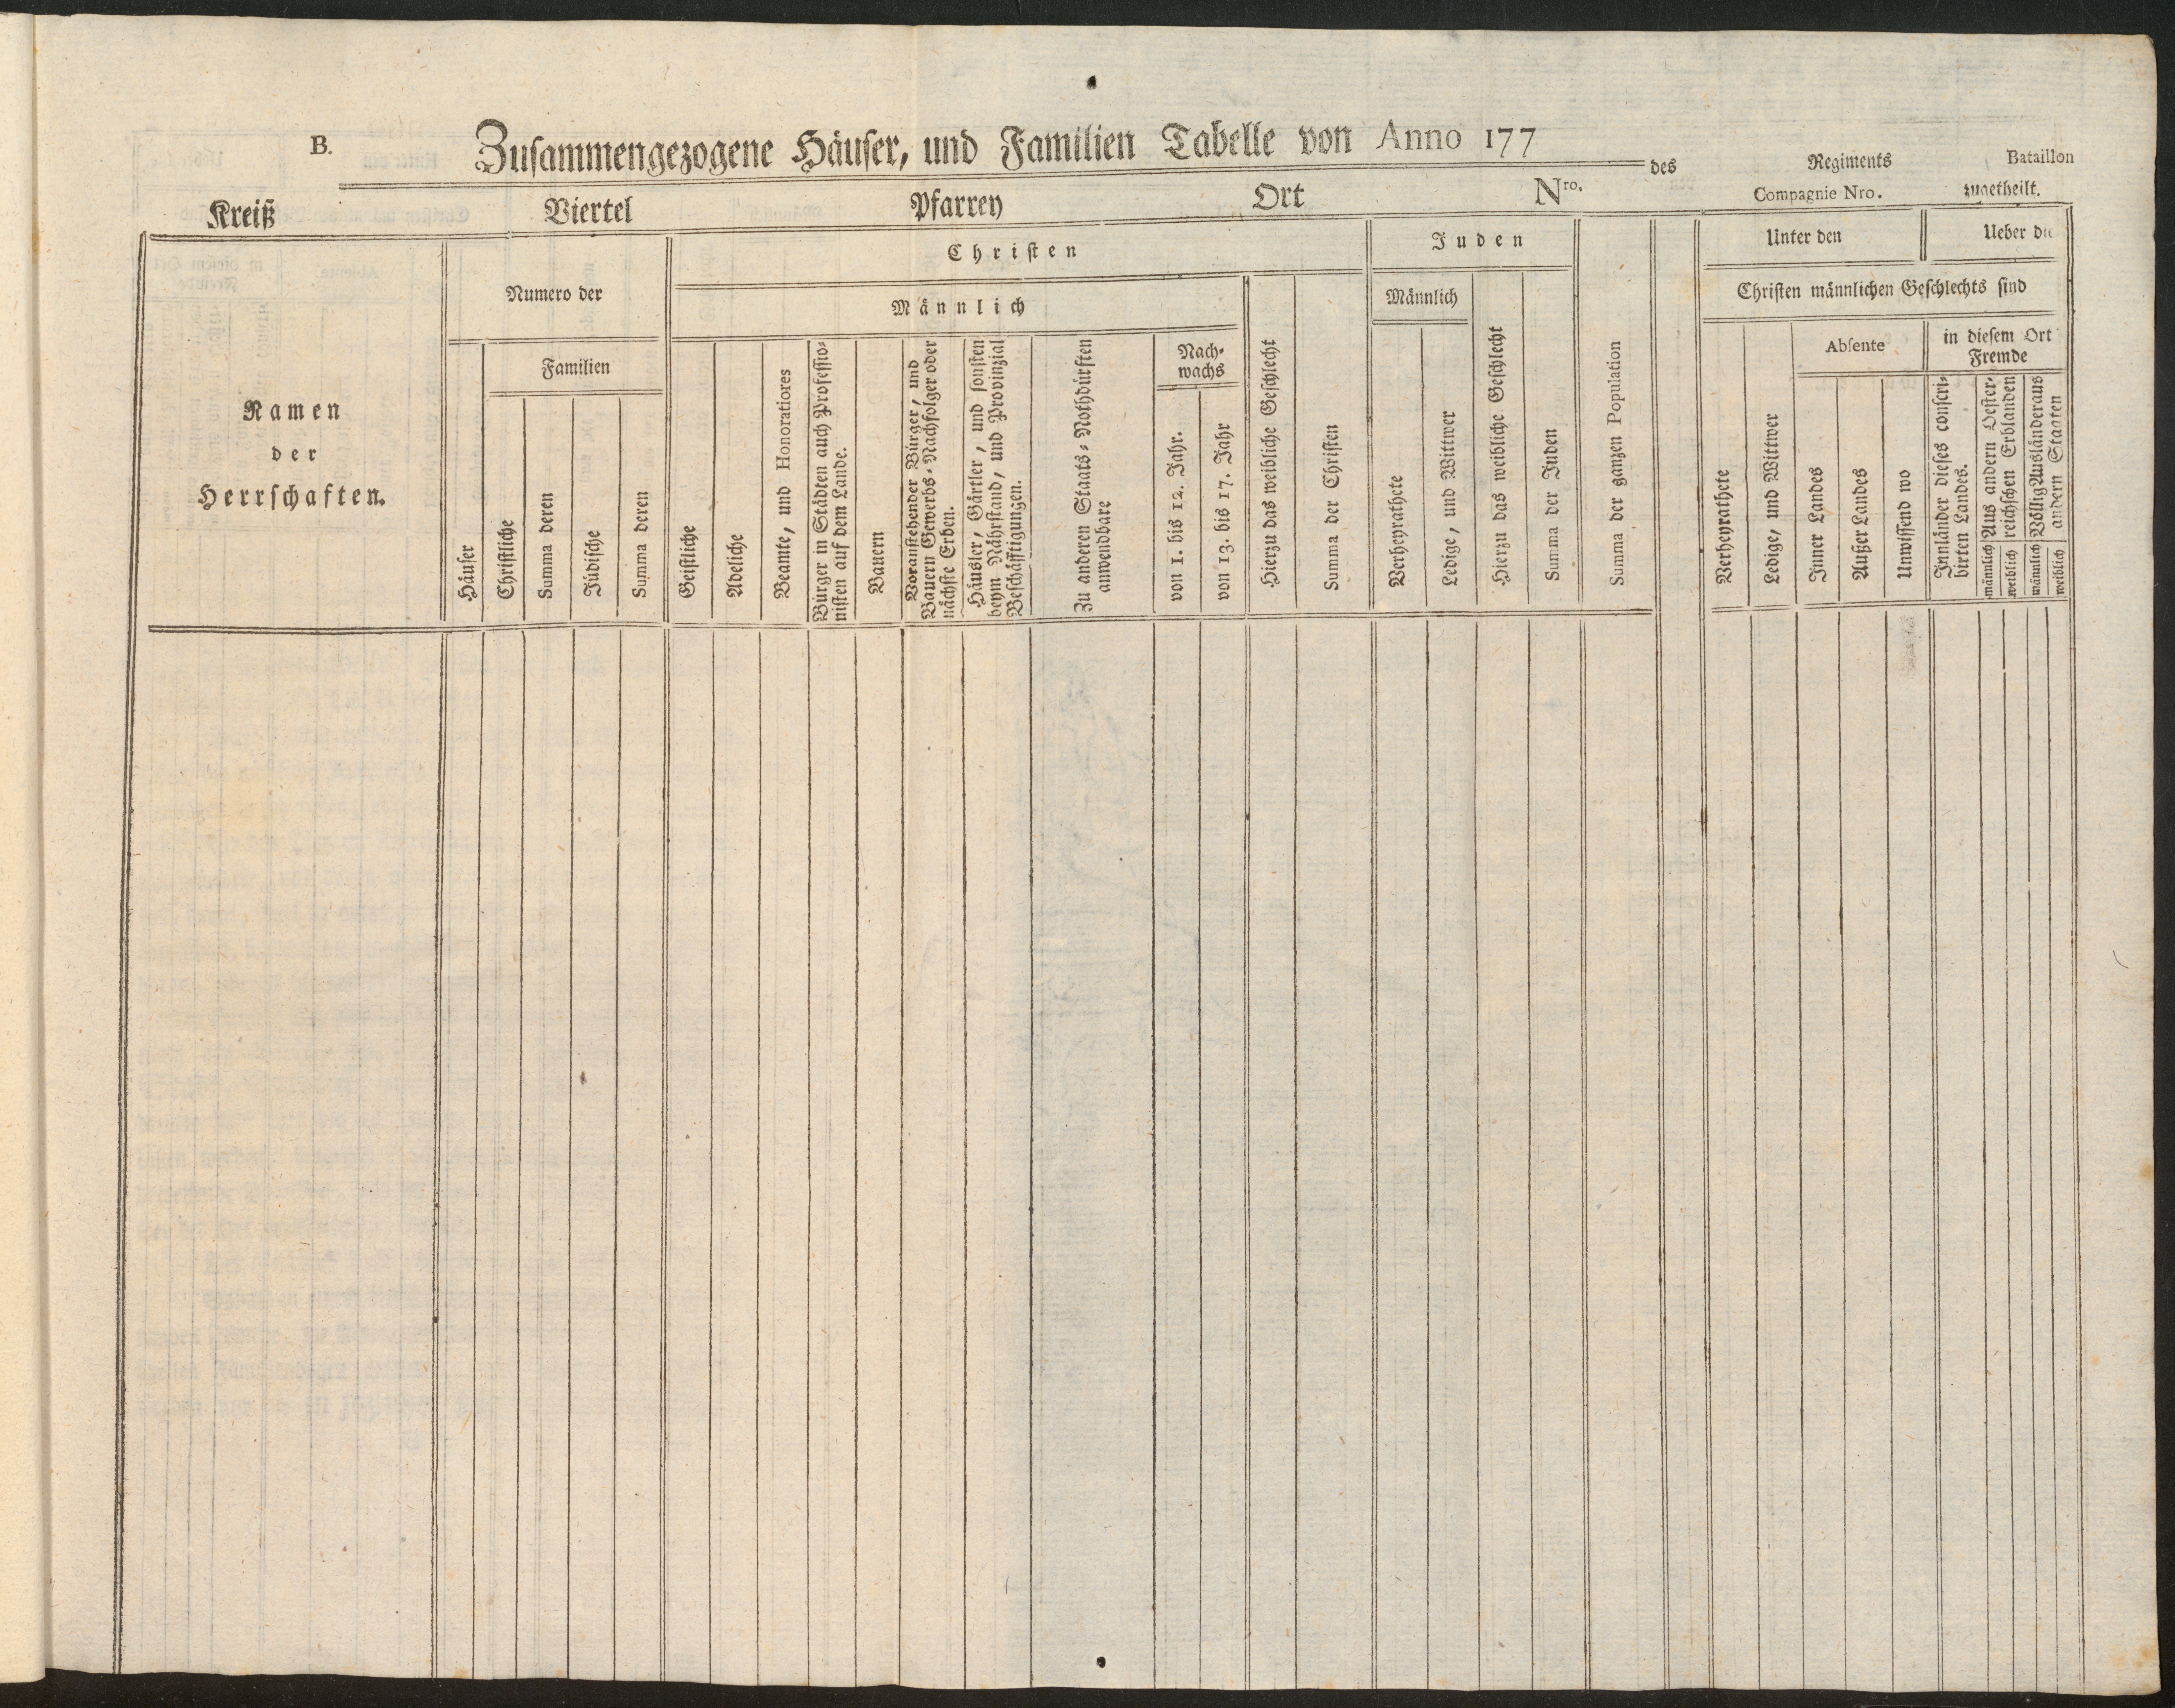 B.
Zusammengezogene Häuser, und Familien Tabelle von Anno 177
des Regiments Bataillon
Compagnie Nro. zugetheilt.
Kreiß Viertel Pfarrey Ort Nro.
Namen
der
Herrschaften.
Numero der
Häuser
Familien
Christliche
Summa deren
Jüdische
Summa deren
Christen
Männlich
Geistliche
Adeliche
Beamte, und Honoratiores
Bürger in Städten auch Professio-
nisten auf dem Lande.
Bauern
Voranstehender Bürger, und
Bauern Gewerbs-Nachfolger oder
nächste Erben.
Häusler, Gärtler, und sonsten
beym Nährstand, und Provinzial
Beschäfftigungen.
Zu anderen Staats-Nothdürften
anwendbare
Nach-
wachs
von 1. bis 12. Jahr.
von 13. bis 17. Jahr
Hierzu das weibliche Geschlecht
Summa der Christen
Juden
Männlich
Verheyrathete
Ledige, und Wittwer
Hierzu das weibliche Geschlecht
Summa der Juden
Summa der ganzen Population
Unter den
Ueber die
Christen männlichen Geschlechts sind
Verheyrathete
Ledige, und Wittwer
Absente
Inner Landes
Außer Landes
Unwissend wo
in diesem Ort
Fremde
Innländer dieses conscri-
birten Landes.
Aus andern Oester-
reichschen Erblanden
männlich
weiblich
Völlig Ausländer aus
andern Staaten
männlich
weiblich